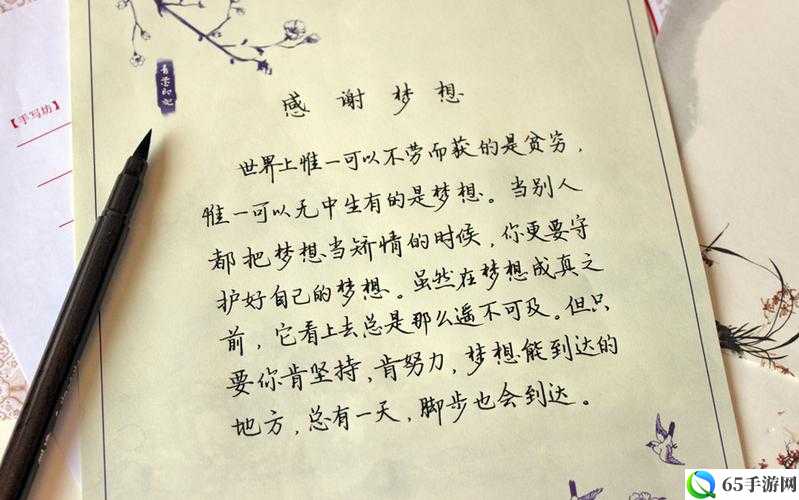 【手写坊】
青蕾印记
感谢梦想
世界上惟一可以不劳而获的是贫穷，
惟一可以无中生有的是梦想。当别人
都把梦想当矫情的时候，你更要守
护好自己的梦想。虽然在梦想成真之
前，它看上去总是那么遥不可及。但只
要你肯坚持，肯努力，梦想能到达的
地方，总有一天，脚步也会到达。
65手游网